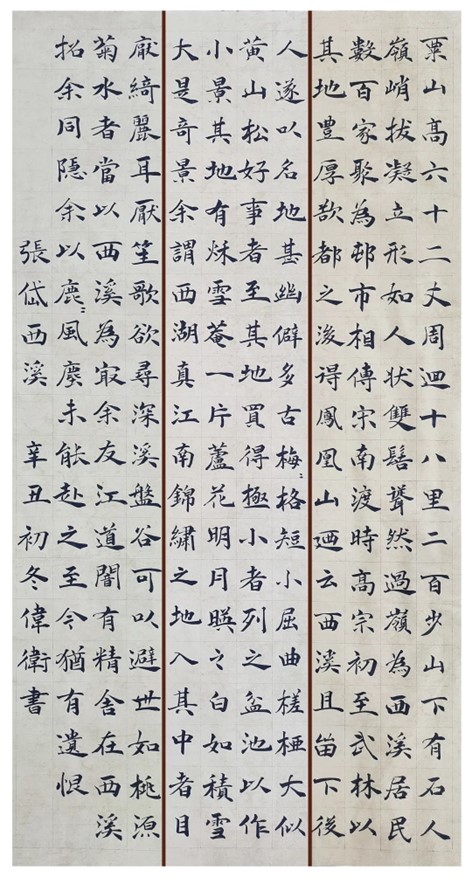 粟山髙六十二丈周迴十八里二百步山下有石人
嶺峭拔凝立形如人状雙髻聳然過嶺為西溪居民
數百家聚為邨市相傳宋南渡時髙宗初至武林以
其地豐厚欲都之後得鳳凰山迺云西溪且畱下後
人遂以名地甚幽僻多古梅〻格短小屈曲槎椏大似
黄山松好事者至其地買得極小者列之盆池以作
小景其地有秌雪菴一片蘆花明月暎〻白如積雪
大是竒景余謂西湖真江南錦繡之地入其中者目
厭綺麗耳厭笙歌欲尋深溪盤谷可以避世如桃源
菊水者當以西溪為冣余友江道闇有精舍在西溪
招余同隱余以鹿〻風塵未能赴之至今猶有遺恨
張岱西溪 辛丑初冬偉衛書